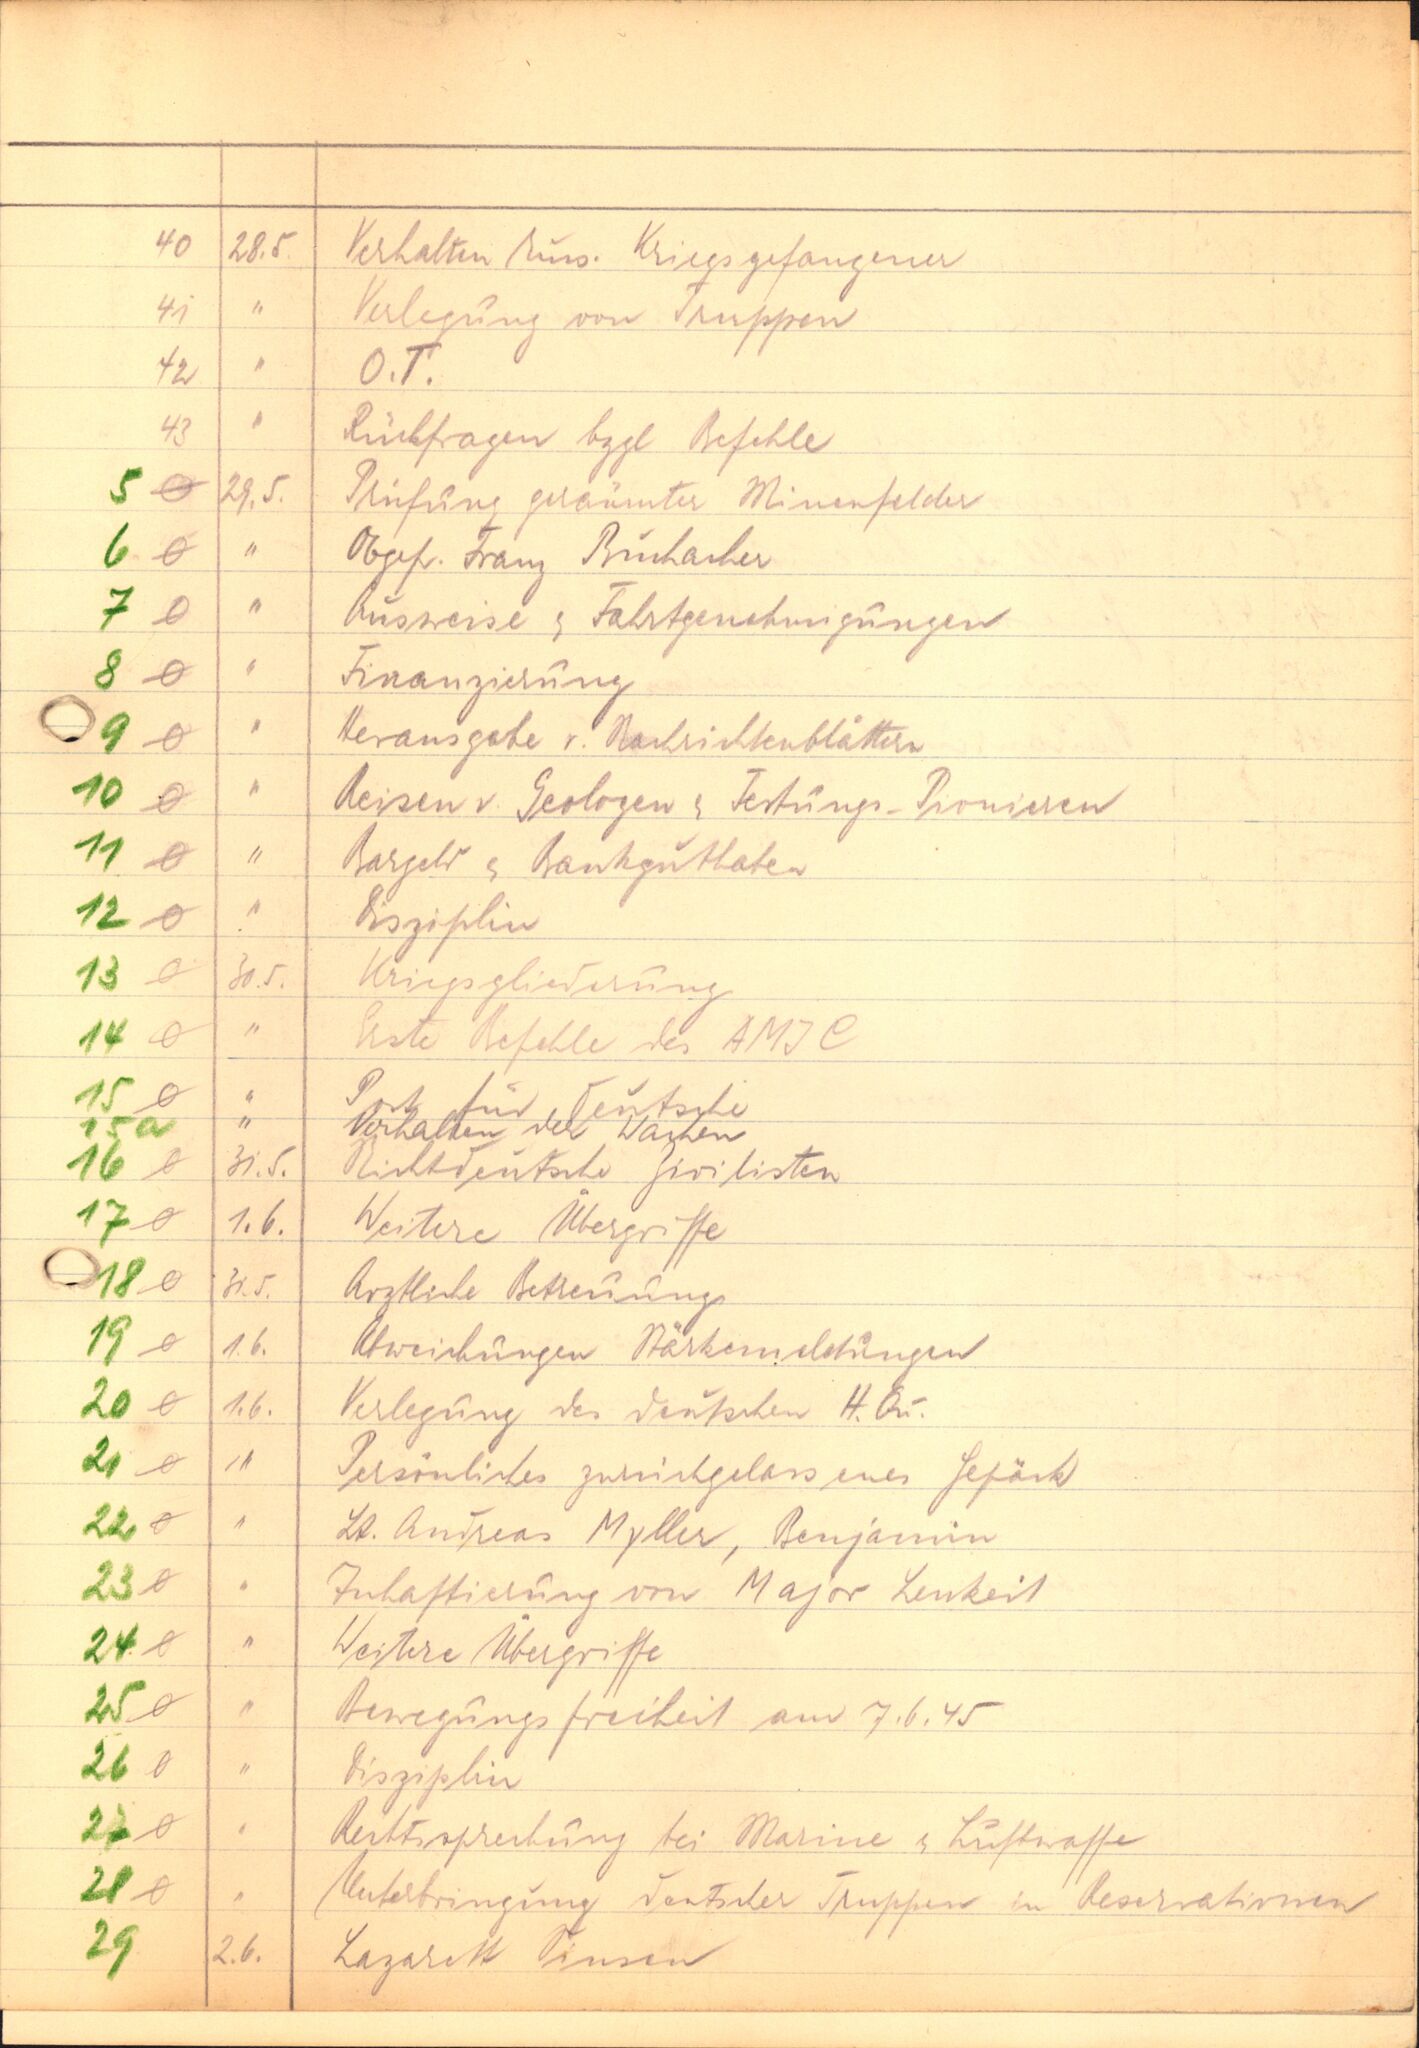 40 28.5. Verhalten russ. Kriegsgefangener
41 " Verlegung von Truppen
42 " O.T.
43 " Rückfragen bzgl Befehle
5 ø 29.5. Prüfung geräumter Minenfelder
6 ø " Obgefr. Franz Buchacher
7 ø " Ausweise & Fahrtgenehmigungen
8 ø " Finanzierung
9 ø " Herausgabe v. Nachrichtenblättern
10 ø " Reisen v. Geologen & Festungs-Pionieren
11 ø " Bargeld & Bankguthaben
12 ø " Disziplin
13 ø 30.5. Kriegsgliederung
14 ø " Erste Befehle des AMJC
15 ø " Post für Deutsche
15a " Verhalten der Wachen
16 ø 31.5. Nichtdeutsche Zivilisten
17 ø 1.6. Weitere Übergriffe
18 ø 31.5. Ärztliche Betreuung
19 ø 1.6. Abweichungen Stärkemeldungen
20 ø 1.6. Verlegung des deutschen H.Qu.
21 ø " Persönliches zurückgelassenes Gepäck
22 ø " Lt. Andreas Myller, Benjamin
23 ø " Inhaftierung von Major Lenkeit
24 ø " Weitere Übergriffe
25 ø " Bewegungsfreiheit am 7.6.45
26 ø " Disziplin
27 ø " Rechtssprechung bei Marine & Luftwaffe
28 ø " Unterbringung deutscher Truppen in Reservationen
29 2.6. Lazarett